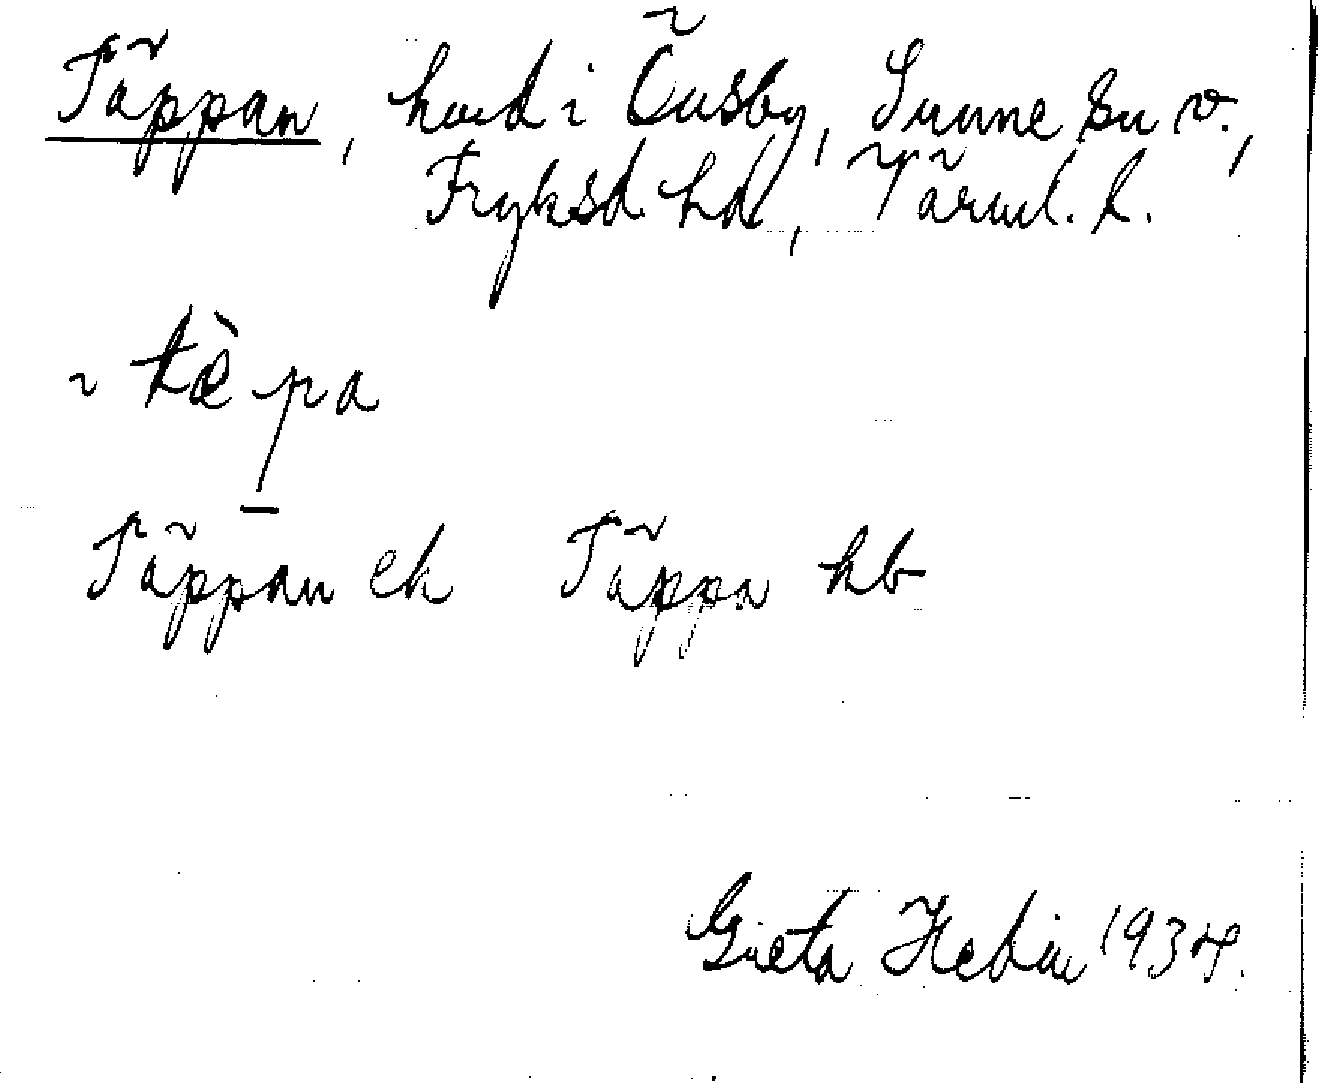 Täppan, hmd i Öusby, Sunne sn v.,
Fryksd. hd, Värml. l.
~ tæ̀pa
Täppan ek Täppa hb
Greta Hebin 1934.